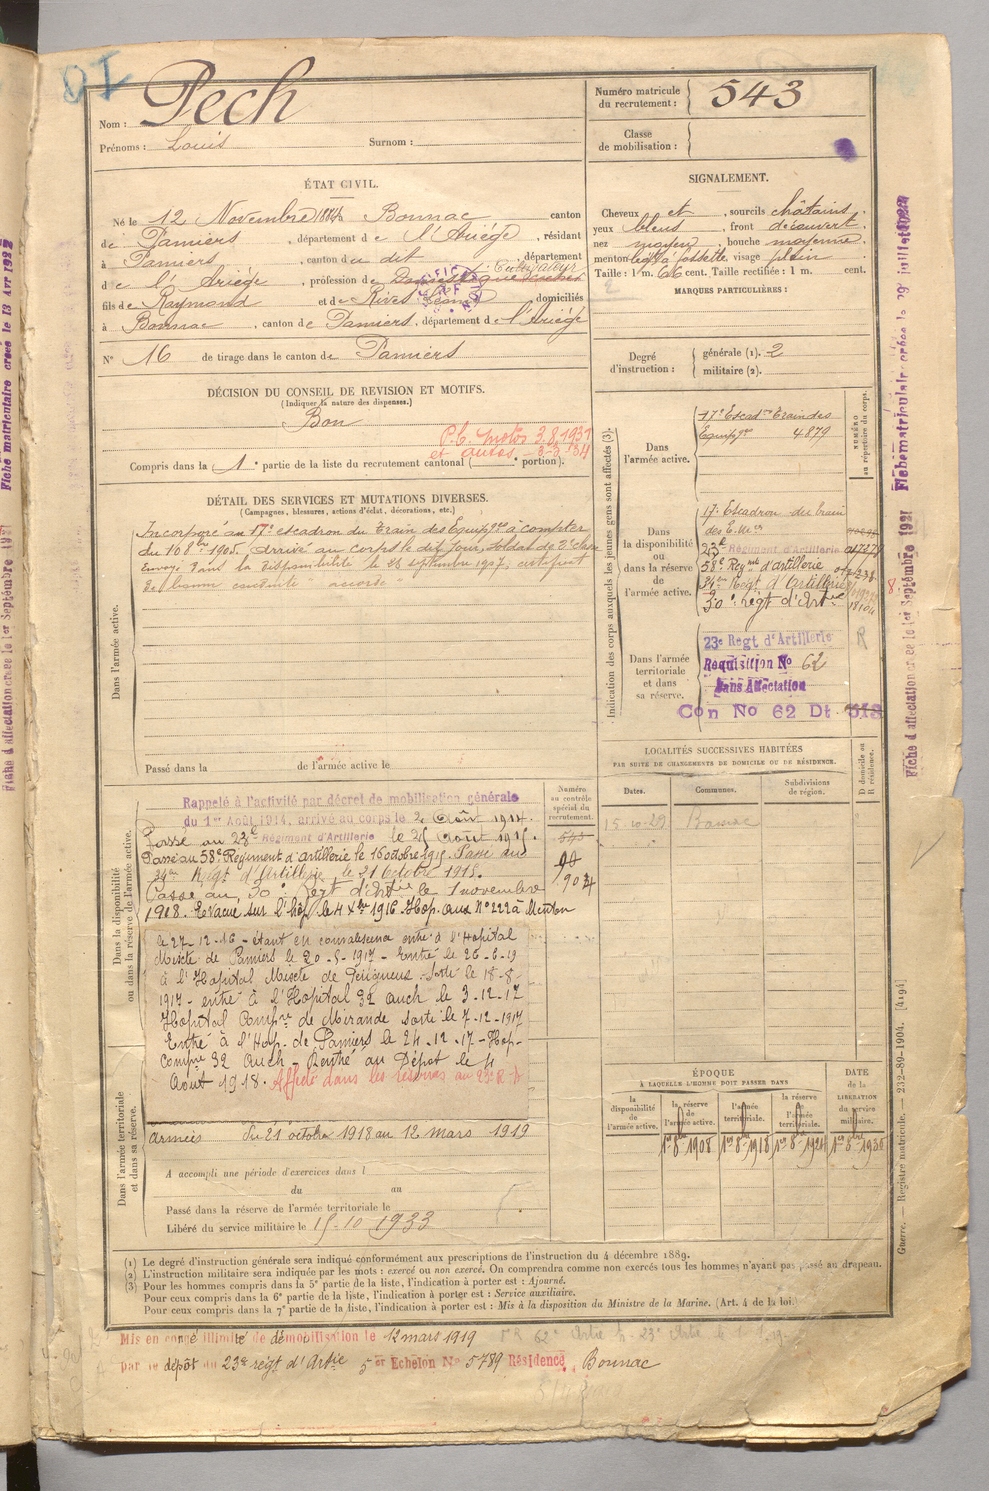 DI
Nom : Pech
Prénoms : Louis Surnom :
Numéro matricule du recrutement : 543
Classe de mobilisation :
ÉTAT CIVIL.
Né le 12 Novembre 1884, à Bonnac, canton
de Pamiers, département de l'Ariège, résidant
à Pamiers, canton du dit, département
d e l'Ariège, profession de Cultivateur
fils de Raymond et de Rives domiciliés
à Bonnac, canton de Pamiers, département de l'Ariège
N° 16 de tirage dans le canton de Pamiers
SIGNALEMENT.
Cheveux et, sourcils châtains
yeux bleus, front découvert
nez moyen, bouche moyenne
menton à fossette, visage plein
Taille : 1 m. 66 cent. Taille rectifiée : 1 m. cent.
MARQUES PARTICULIÈRES :
Degré d'instruction : générale (1). 2
militaire (2).
DÉCISION DU CONSEIL DE REVISION ET MOTIFS.
(Indiquer la nature des dispenses.)
Bon
P.C. motos 3.8.1931
et autos
Compris dans la 1e partie de la liste du recrutement cantonal ( portion).
DÉTAIL DES SERVICES ET MUTATIONS DIVERSES.
(Campagnes, blessures, actions d'éclat, décorations, etc.)
Dans l'armée active.
Incorporé au 17e escadron du Train des Equipges à compter
du 10 8bre 1905, arrivé au corps le dit jour, soldat de 2e classe
Envoyé dans la disponibilité le 28 septembre 1907, certificat
de bonne conduite "accordé"
Passé dans la de l'armée active le
Indication des corps auxquels les jeunes gens sont affectés (3).
NUMÉRO au répertoire du corps.
Dans l'armée active.
17e Escadon Train des
Equipges 4879
Dans la disponibilité ou dans la réserve de l'armée active.
17e Escadron du train
des E. mres
23e Régiment d'Artillerie
58e Regnt d'artillerie
34me Regt d'Artillerie
30e regt d'Artie
Dans l'armée territoriale et dans sa réserve.
23e Regt d'Artillerie
Requisition No 62
Sans Affectation
Con No 62 Dt 313
R
LOCALITÉS SUCCESSIVES HABITÉES
PAR SUITE DE CHANGEMENTS DE DOMICILE OU DE RÉSIDENCE.
Dates. Communes. Subdivisions de région. D domicile ou R résidence.
15-10-29 Bonnac
Dans la disponibilité ou dans la réserve de l'armée active.
Numéro au contrôle spécial du recrutement.
543
90
9034
Rappelé à l'activité par décret de mobilisation générale
du 1er Août 1914, arrivé au corps le 2 Août 1914.
Passé au 23e Régiment d'Artillerie le 25 Août 1915.
Passé au 58e Régiment d'artillerie le 16 octobre 1915. Passé au
34me Régt d'Artillerie, le 21 Octobre 1915.
Passé au 30e Regt d'Artie le 1 novembre
1918. Evacué sur l'hôp. le 4 Xbre 1916. Hop. aux n° 222 à Menton
le 27-12-16 - étant en convalescence entré à l'Hopital
Mixte de Pamiers le 20-5-1917 - Entré le 26-6-19
à l'Hopital Mixte de Périgueux. Sorti le 18-8-
1917 - entré à l'Hopital 32 Auch le 3-12-17
Hôpital Compre de Mirande sorti le 7-12-1917
Entré à l'Hop. de Pamiers le 24-12-17 - Hop.
Compre 32 Auch - Rentré au Dépôt le 4
Août 1918. Affecté dans les réserves au 23e R.A
Dans l'armée territoriale et dans sa réserve.
armées Du 21 octobre 1918 au 12 mars 1919
A accompli une période d'exercices dans l
du au
Passé dans la réserve de l'armée territoriale le
Libéré du service militaire le 15-10-1933
ÉPOQUE
À LAQUELLE L'HOMME DOIT PASSER DANS
la disponibilité de l'armée active. la réserve de l'armée active. l'armée territoriale. la réserve de l'armée territoriale.
DATE de la LIBÉRATION du service militaire.
1er 8bre 1908 1er 8bre 1918 1er 8bre 1924 1er 8bre 1930
(1) Le degré d'instruction générale sera indiqué conformément aux prescriptions de l'instruction du 4 décembre 1889.
(2) L'instruction militaire sera indiquée par les mots : exercé ou non exercé. On comprendra comme non exercés tous les hommes n'ayant pas passé au drapeau.
(3) Pour les hommes compris dans la 5e partie de la liste, l'indication à porter est : Ajourné.
Pour ceux compris dans la 6e partie de la liste, l'indication à porter est : Service auxiliaire.
Pour ceux compris dans la 7e partie de la liste, l'indication à porter est : Mis à la disposition du Ministre de la Marine. (Art. 4 de la loi.)
Mis en congé illimité de démobilisation le 12 mars 1919
par le dépôt du 23e regt d'Artie 5er Echelon No 5789 Résidence, Bonnac
Guerre. — Registre matricule. — 232-89-1904. [4194]
Fiche matriculaire créée le 29 juillet 1924
Fiche d'affectation créée le 1er Septembre 1931
Fiche matriculaire créée le 13 Avr 1932
Fiche d'affectation créée le 1er Septembre 1931